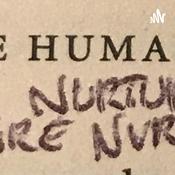 E HUMA
NURTU
ARE NUR